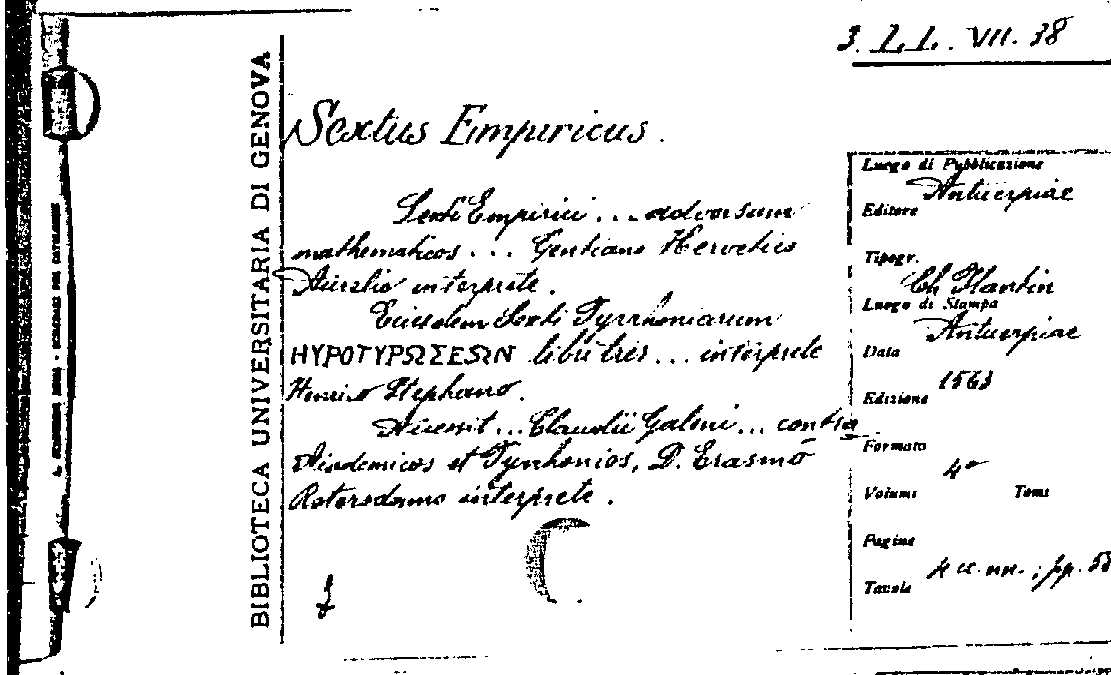 3. LL. VII. 38
BIBLIOTECA UNIVERSITARIA DI GENOVA
Sextus Empiricus.
Sexti Empirici ... adversum
mathematicos ... Gentiano Herveto
Aurelio interprete.
Eiusdem Sexti Pyrrhoniarum
HYPOTYPΩΣEΩN libri tres ... interprete
Henrico Stephano.
Accessit ... Claudii Galeni ... contra
Academicos et Pyrrhonios, D. Erasmo
Roterodamo interprete.
Luogo di Pubblicazione
Antuerpiae
Editore
Tipogr.
Ch. Plantin
Luogo di Stampa
Antuerpiae
Data
1569
Edizione
Formato
4°
Volumi Tomi
Pagine
4 cc. nn.; pp. 58
Tavole